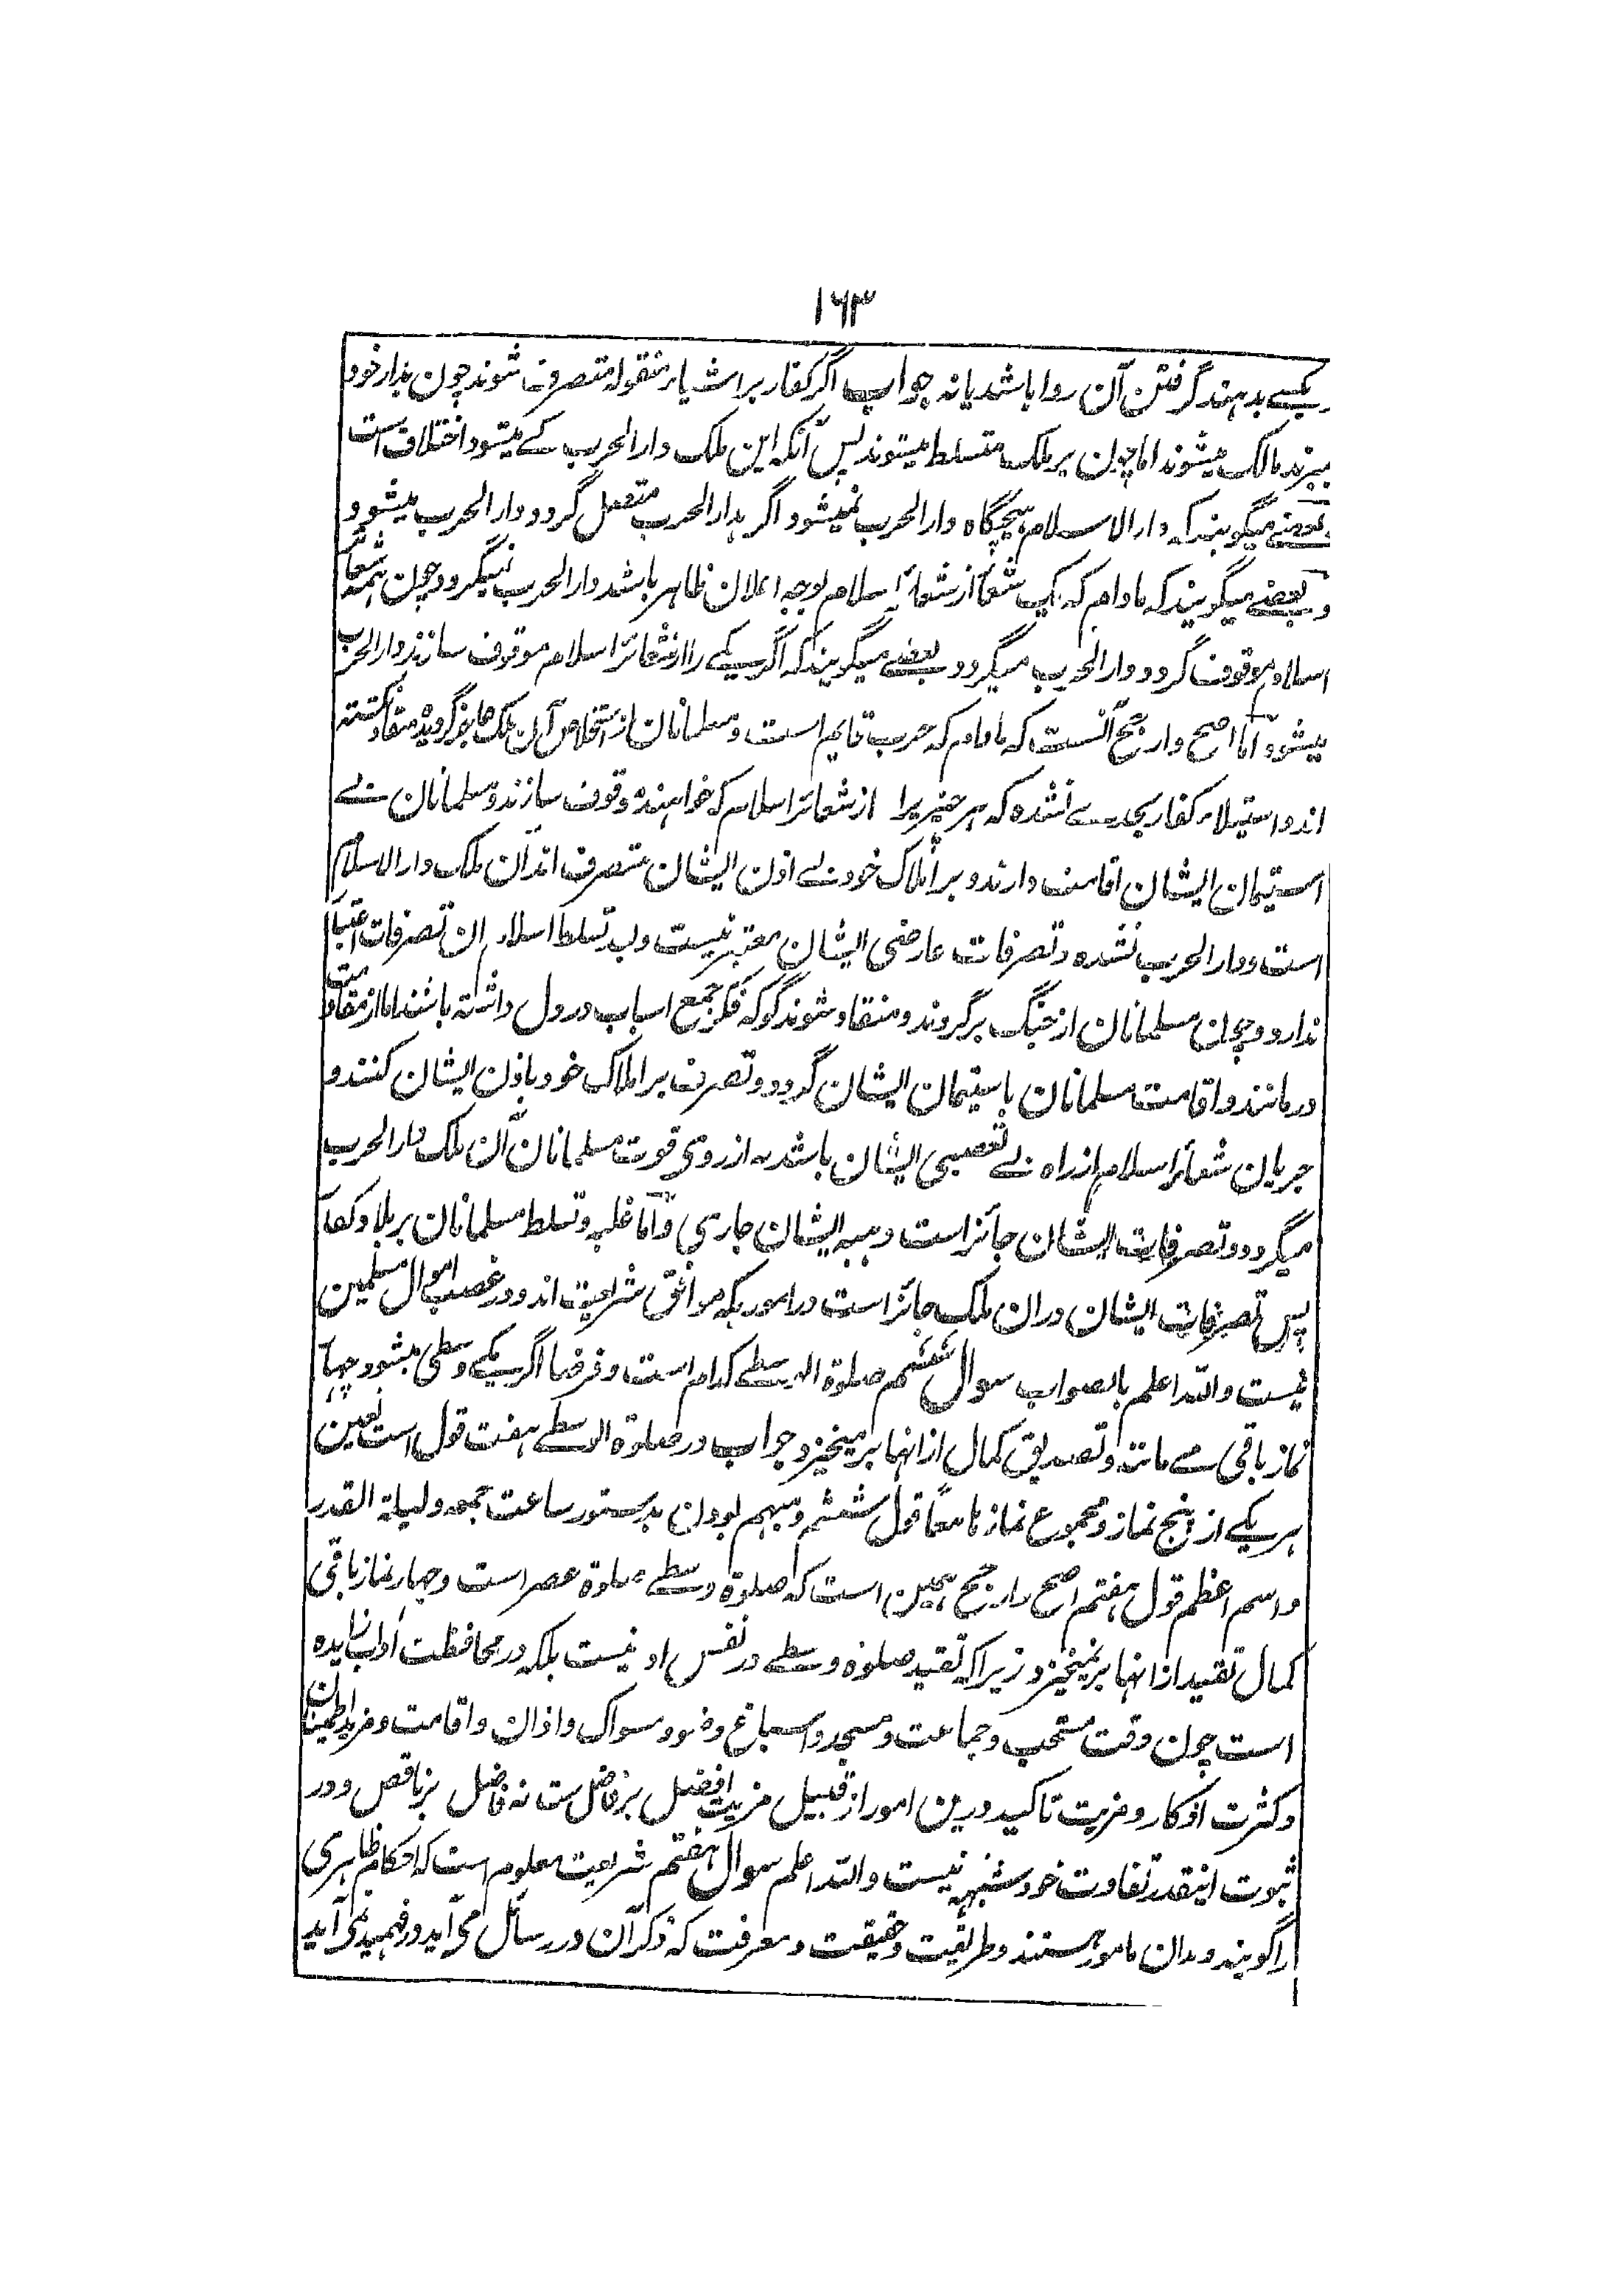 ۱۶۳
بکسے بدهند گرفتن آن روا باشد یا نه جواب اگر کفار بر اشیاء منقوله متصرف شوند چون بدار خود
ببرند مالک میشوند اما چون بر ملک متسلط میشوند پس آنکه این ملک دار الحرب کے میشود اختلاف است
بعضے میگویند که دار الاسلام هیچگاه دار الحرب نمیشود اگر بدار الحرب متصل گردد دار الحرب میشود
و بعضے میگویند که مادام که یک شعار از شعائر اسلام بوجه اعلان ظاهر باشد دار الحرب نمیگردد چون همه شعائر
اسلام موقوف گردد دار الحرب میگردد بعضے میگویند که اگر یکے را از شعائر اسلام موقوف سازند دار الحرب
میشود اما اصح و ارجح آنست که مادام که حرب قایم است و مسلمانان از استخلاص آن ملک عاجز گردیده منقاد نگشته
اند و استیلاء کفار بحدے نشده که هر چیز یرا از شعائر اسلام که خواهند موقوف سازند و مسلمانان بے
استیمان ایشان اقامت دارند و بر املاک خود بے اذن ایشان متصرف اند آن ملک دار الاسلام
است و دار الحرب نشده و تصرفات عارضی ایشان معتبر نیست و بے تسلط اسلام ان تصرفات اعتبار
ندارد و چون مسلمانان از جنگ برگردند و منقاد شوند گو که فکر جمع اسباب در دل داشته باشند اما از مقاومت
درمانند و اقامت مسلمانان باستیمان ایشان گردد و تصرف بر املاک خود باذن ایشان کنند و
جریان شعائر اسلام از راه بے تعصبی ایشان باشد نه از روی قوت مسلمانان آن ملک دار الحرب
میگردد و تصرفات ایشان جائز است و هبه ایشان جاری و اما غلبه و تسلط مسلمانان بر بلاد کفار
پس تصرفات ایشان دران ملک جائز است در اموریکه موافق شریعت اند و در غصب اموال مسلمین
نیست والله اعلم بالصواب سوال ششم صلوة الوسطے کدام است و فرضا اگر یکے وسطی میشود چهار
نماز باقی مے ماند و تصدیق کمال از انها برمیخیزد جواب در صلوة الوسطے هفت قول است تعین
هر یکے از پنج نماز و مجموع نمازها معا قول ششم و مبهم بودن بدستور ساعت جمعه و لیلة القدر
و اسم اعظم قول هفتم اصح و ارجح همین است که صلوة وسطے صلوة عصر است و چهار نماز باقی
کمال تقید از انها برنمیخیزد زیرا که تقید صلوة وسطے در نفس او نیست بلکه در محافظت آداب زایده
است چون وقت مستحب و جماعت و مسجد و اسباغ وضو و مسواک و اذان و اقامت و مزید اطمینان
و کثرت اذکار و مزیت تاکید درین امور از قبیل مزیت افضل بر فاضل ست نه فاضل بر ناقص و در
ثبوت اینقدر تفاوت خود شبهه نیست والله اعلم سوال هفتم شریعت معلوم است که احکام ظاهری
را گویند و بدان مامور هستند و طریقت و حقیقت و معرفت که ذکر آن در رسائل می آید در فهمید نمی آید